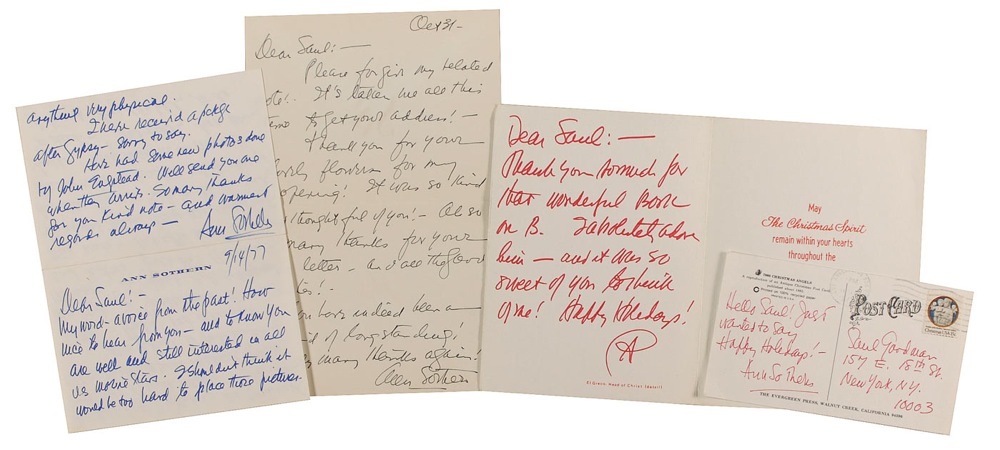 anything very physical.
I have received a package
after Gypsy - sorry to say.
Have had some new photos done
by John Engstead. Will send you one
when they arrive. So many thanks
for you kind note - and warmest
regards always -
Ann Sothern
9/14/77
ANN SOTHERN
Dear Saul! -
My word - a voice from the past! How
nice to hear from you - and to know you
are well and still interested in all
us movie stars. I shouldn't think it
would be too hard to place those pictures.
Oct 31 -
Dear Saul: -
Please forgive my belated
note! It's taken me all this
time to get your address! -
Thank you for your
lovely flowers for my
opening! It was so kind
thoughtful of you! - Also
many thanks for your
letter - and all the good
have indeed been a
of long standing!
many thanks again!
Ann Sothern
Dear Saul: -
Thank you so much for
that wonderful Book
on B. I absolutely adore
him - and it was so
sweet of you to think
of me! Happy Holidays!
A
El Greco, Head of Christ (detail)
May
The Christmas Spirit
remain within your hearts
throughout the
1980 CHRISTMAS ANGELS
Hello Saul! Just
wanted to say
Happy Holidays! -
Ann Sothern
THE EVERGREEN PRESS, WALNUT CREEK, CALIFORNIA
POST CARD
Saul Goodman
157 E. 18th St.
New York, N.Y.
10003